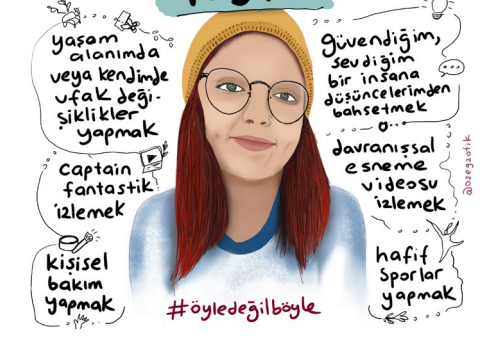 yaşam
alanımda
veya kendimde
ufak deği-
şiklikler
yapmak
captain
fantastik
izlemek
kişisel
bakım
yapmak
güvendiğim,
sevdiğim
bir insana
düşüncelerimden
bahsetmek
davranışsal
esneme
videosu
izlemek
hafif
sporlar
yapmak
#öyledeğilböyle
@ozegzotik